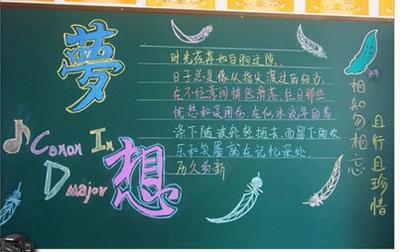 夢
想
Conon In
D major
时光荏苒如白驹过隙,
日子总是像从指尖渡过的细纱,
在不经意间悄然滑落,往日那些
忧愁和用伤,在似水流年的荡
涤下随波轻轻逝去,而留下的欢
乐和笑靥在记忆深处,
历久弥新
相知勿相忘
且行且珍惜